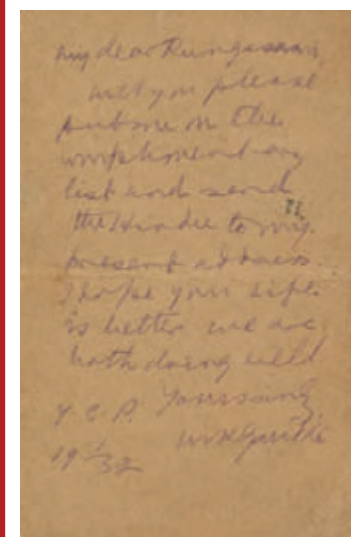 My dear Rungaswami,
will you please
put me on the
complimentary
list and send
the Hindu to my
present address.
I hope your wife
is better we are
both doing well
Y. C. P. Yours sincerely
19 32